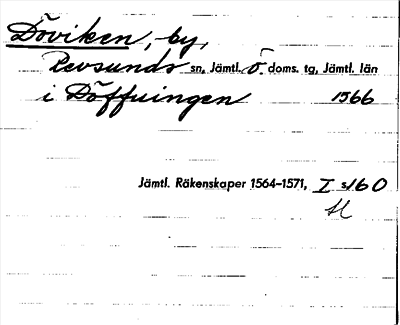 Döviken, by,
Revsunds sn, Jämtl. Ö. doms. tg, Jämtl. län
i Döffuingen 1566
Jämtl. Räkenskaper 1564–1571, I s160